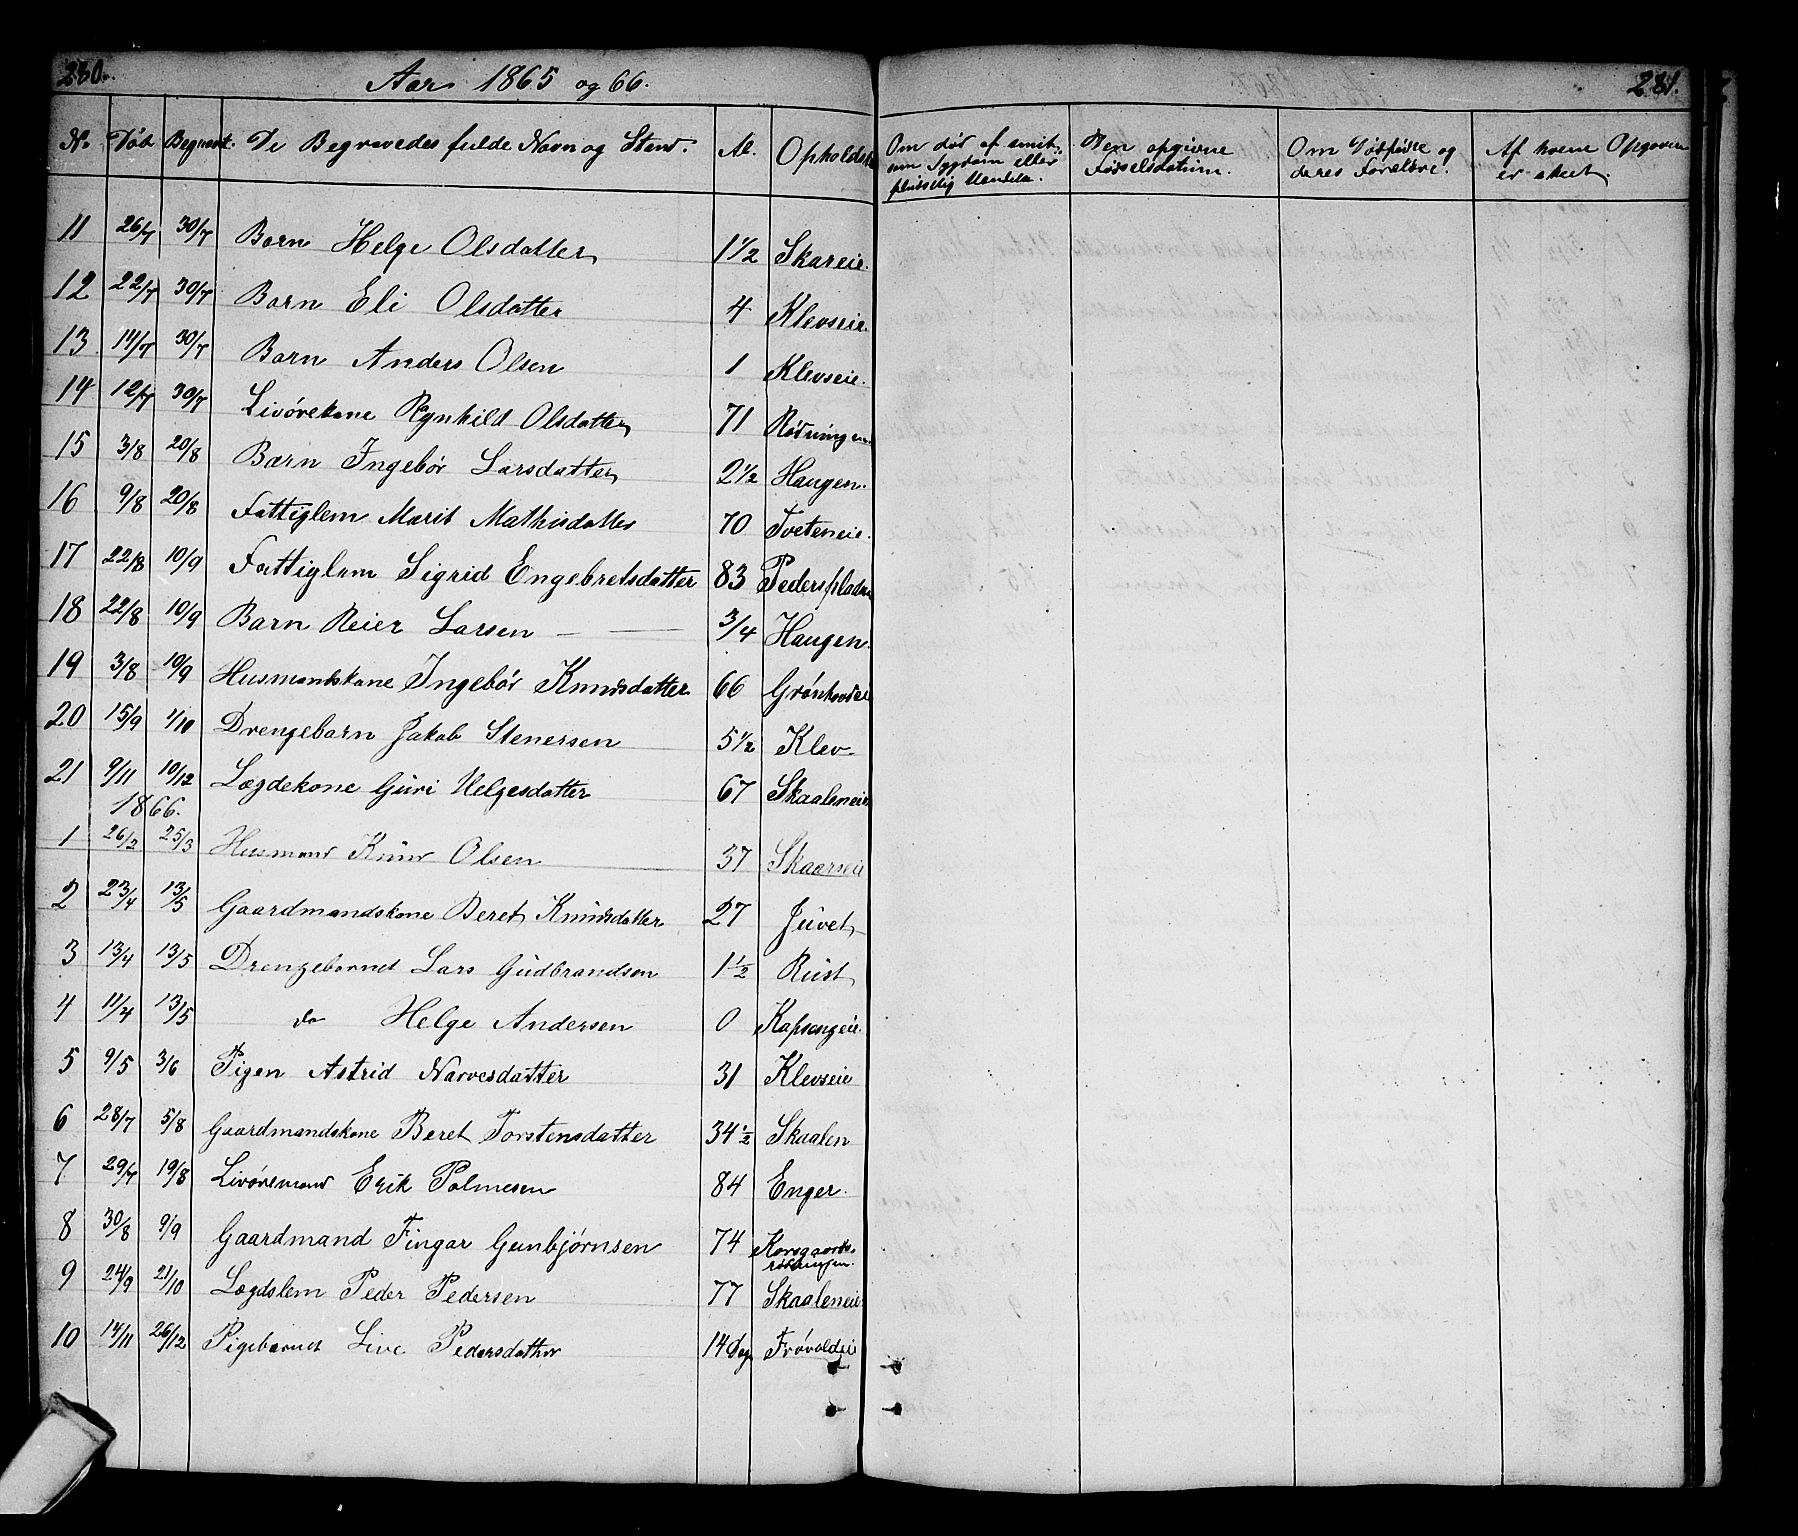 280.
Aar 1865 og 66.
No Død Begravet. De Begravedes fulde Navn og Stand Al. Opholds
11 26/7 30/7 Barn Helge Olsdatter 1 1/2 Skareie.
12 22/7 30/7 Barn Eli Olsdatter 4 Klevseie.
13 14/7 30/7 Barn Anders Olsen 1 Klevseie.
14 12/7 30/7 Livørekone Rgnhild Olsdatter 71 Rødningen
15 3/8 20/8 Barn Ingebør Larsdatter 2 1/2 Haugen.
16 9/8 20/8 Fattiglem Marit Mathisdatter 70 Tveteneie.
17 22/8 10/9 Fattiglem Sigrid Engebretsdatter 83 Pederspladsen
18 22/8 10/9 Barn Reier Larsen — — 3/4 Haugen.
19 3/8 10/9 Husmandskone Ingebør Knudsdatter 66 Grønhovdeie
20 15/9 1/10 Drengebarn Jakob Stenersen 5 1/2 Klev.
21 9/11 10/12 Lægdekone Guri Helgesdatter 67 Skaaleneie
1866.
1 26/2 25/3 Husmand Knud Olsen 37 Skaarseie
2 23/4 13/5 Gaardmandskone Beret Knudsdatter 27 Juvet
3 13/4 13/5 Drengebarnet Lars Gudbrandsen 1 1/2 Rust
4 11/4 13/5 do Helge Andersen 0 Kapsengeie.
5 9/5 3/6 Pigen Astrid Narvesdatter 31 Klevseie
6 28/7 5/8 Gaardmandskone Beret Torstensdatter 34 1/2 Skaalen
7 29/7 19/8 Livøremand Erik Palmesen 84 Enger.
8 30/8 9/9 Gaardmand Fingar Gunbjørnsen 74 Korsgaards-
rødningen.
9 24/9 21/10 Lægdslem Peder Pedersen 77 Skaaleneie
10 14/11 26/12 Pigebarnet Live Pedersdatter 14 Dage Frøvoldeie
281.
Om død af smit-
som Sygdom eller
pludselig Hændelse.
Den opgivne
Fødselsdatum.
Om Dødfødte og
deres Forældre.
Af hvem Opgaven
er skeet.